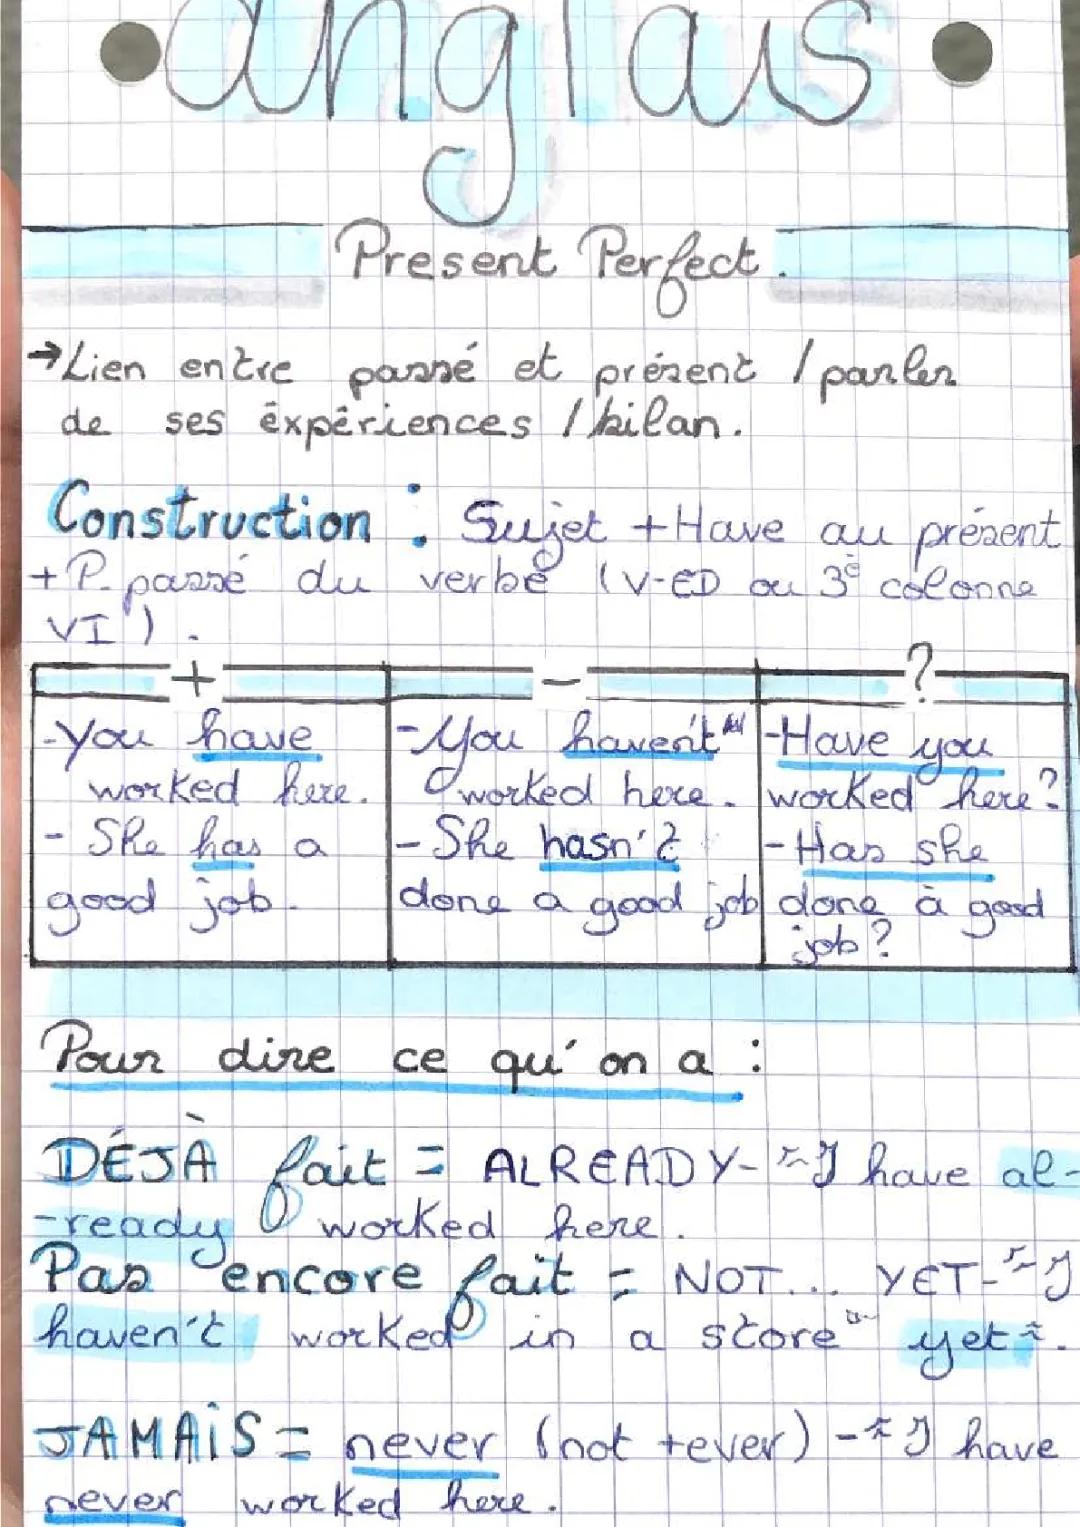 anglais
Present Perfect.
→Lien entre passé et présent / parler
de ses expériences / bilan.
Construction : Sujet + Have au présent
+ P. passé du verbe (V-ED ou 3e colonne
VI).
+
-You have
worked here.
- She has a
good job.
-
-You haven't
worked here.
- She hasn't
done a good job
?
-Have you
worked here?
-Has she
done a good
job?
Pour dire ce qu'on a :
DÉJÀ fait = ALREADY- I have al-
-ready worked here.
Pas encore fait = NOT... YET- I
haven't worked in a store yet.
JAMAIS = never (not +ever) - I have
never worked here.